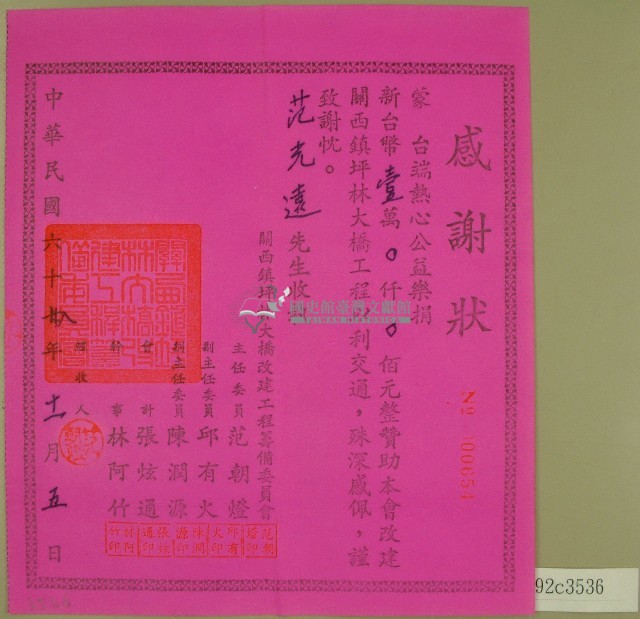 感謝狀
№ 00654
蒙　台端熱心公益樂捐
新台幣壹萬0仟0佰元整贊助本會改建
關西鎮坪林大橋工程利交通，殊深感佩，謹
致謝忱。
范光遠先生收
關西鎮坪大橋改建工程籌備委員會
主任委員范朝燈
副主任委員邱有火
副主任委員陳潤源
會計張炫通
幹事林阿竹
經收人
中華民國六十年十一月五日
國史館臺灣文獻館
TAIWAN HISTORICA
92c3536